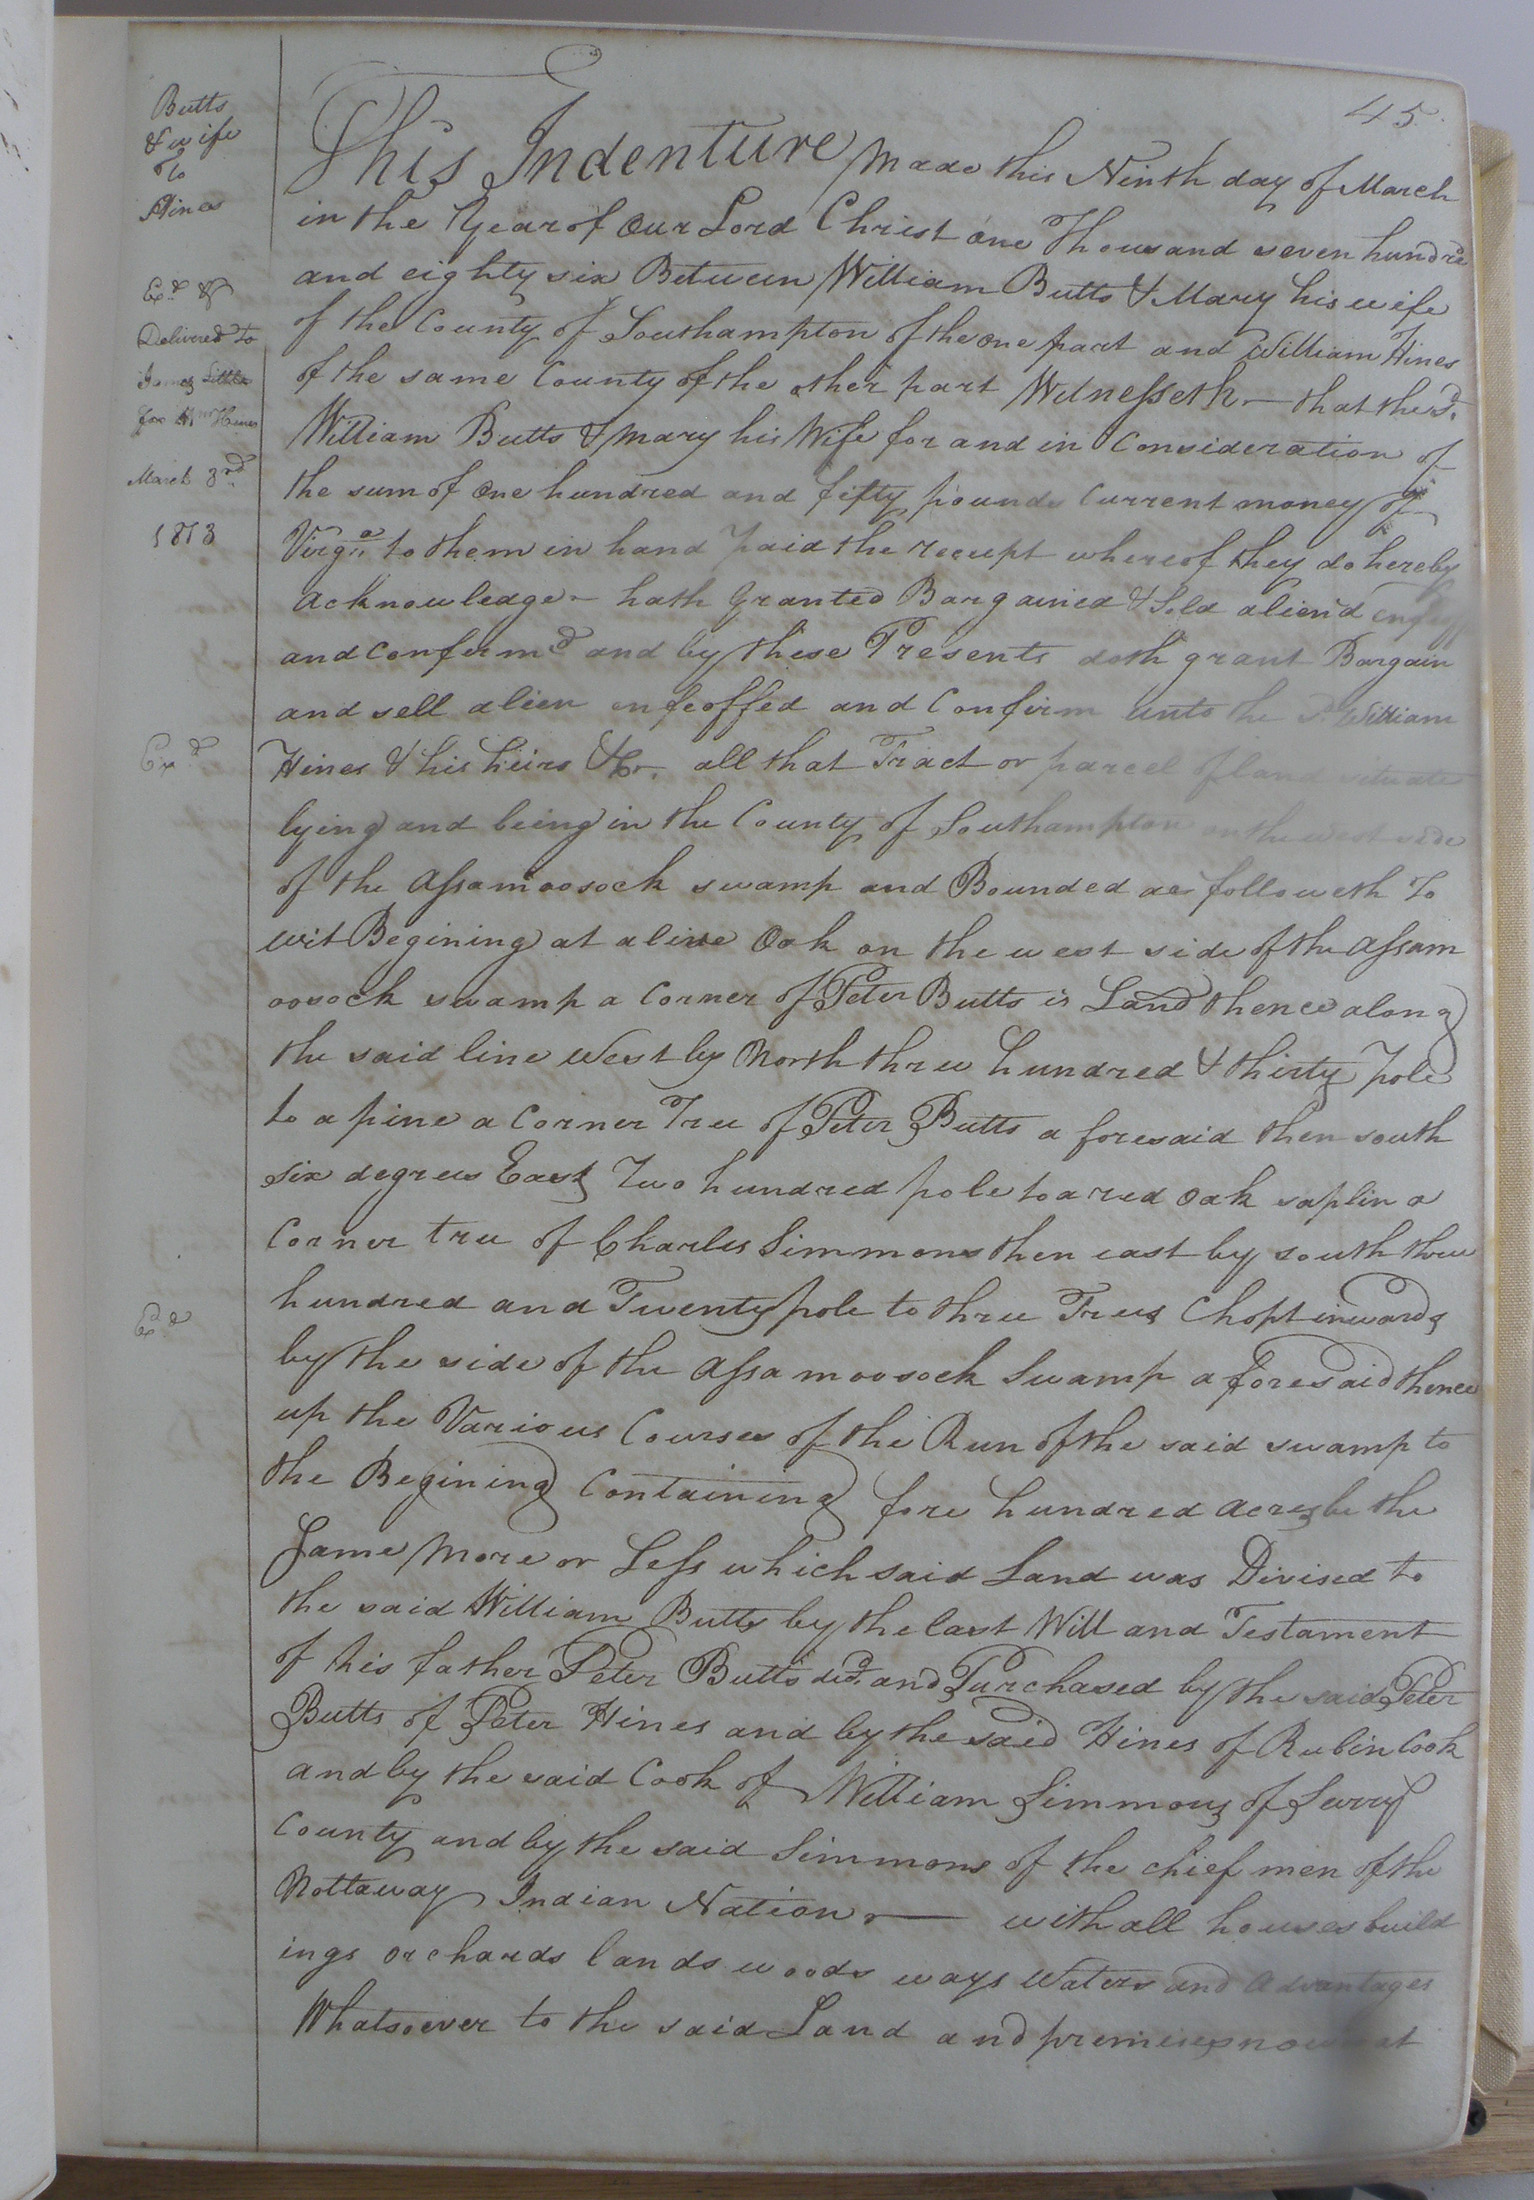 45.
Butts
& wife
To
Hines
Exd &
Delivered to
James Little
for Wm Hines
March 3rd
1813
Exd
Exd
This Indenture Made this Ninth day of March
in the Year of Our Lord Christ one Thousand seven hundred
and eighty six Between William Butts & Mary his wife
of the County of Southampton of the one part and William Hines
of the same County of the other part Witnesseth — that the sd.
William Butts & Mary his Wife for and in Consideration of
the sum of One hundred and fifty pounds Current money of
Virga. to them in hand paid the receipt whereof they do hereby
acknowledge — hath Granted Bargained & Sold alien'd
and Confirmd and by these Presents doth grant Bargain
and sell alien enfeoffed and Confirm unto the sd. William
Hines & his heirs &c. all that Tract or parcel of land situate
lying and being in the County of Southampton on the west side
of the Assamoosock swamp and Bounded as followeth To
wit Begining at a live Oak on the west side of the Assam
oosock swamp a Corner of Peter Butts is Land thence along
the said line West by North three hundred & thirty pole
to a pine a Corner Tree of Peter Butts a foresaid then south
six degrees East Two hundred pole to a red Oak saplin a
Corner tree of Charles Simmons then east by south three
hundred and Twenty pole to three Trees Chopt inwards
by the side of the Assamoosock Swamp a foresaid thence
up the Various Courses of the Run of the said swamp to
the Begining Containing fore hundred acres be the
Same More or Less which said Land was Divised to
the said William Butts by the last Will and Testament
of his father Peter Butts decd. and Purchased by the said Peter
Butts of Peter Hines and by the said Hines of Rubin Cook
and by the said Cook of William Simmons of Surry
County and by the said Simmons of the chief men of the
Nottaway Indian Nation — with all houses build
ings orchards lands woods ways Waters and advantages
Whatsoever to the said Land and premises now at